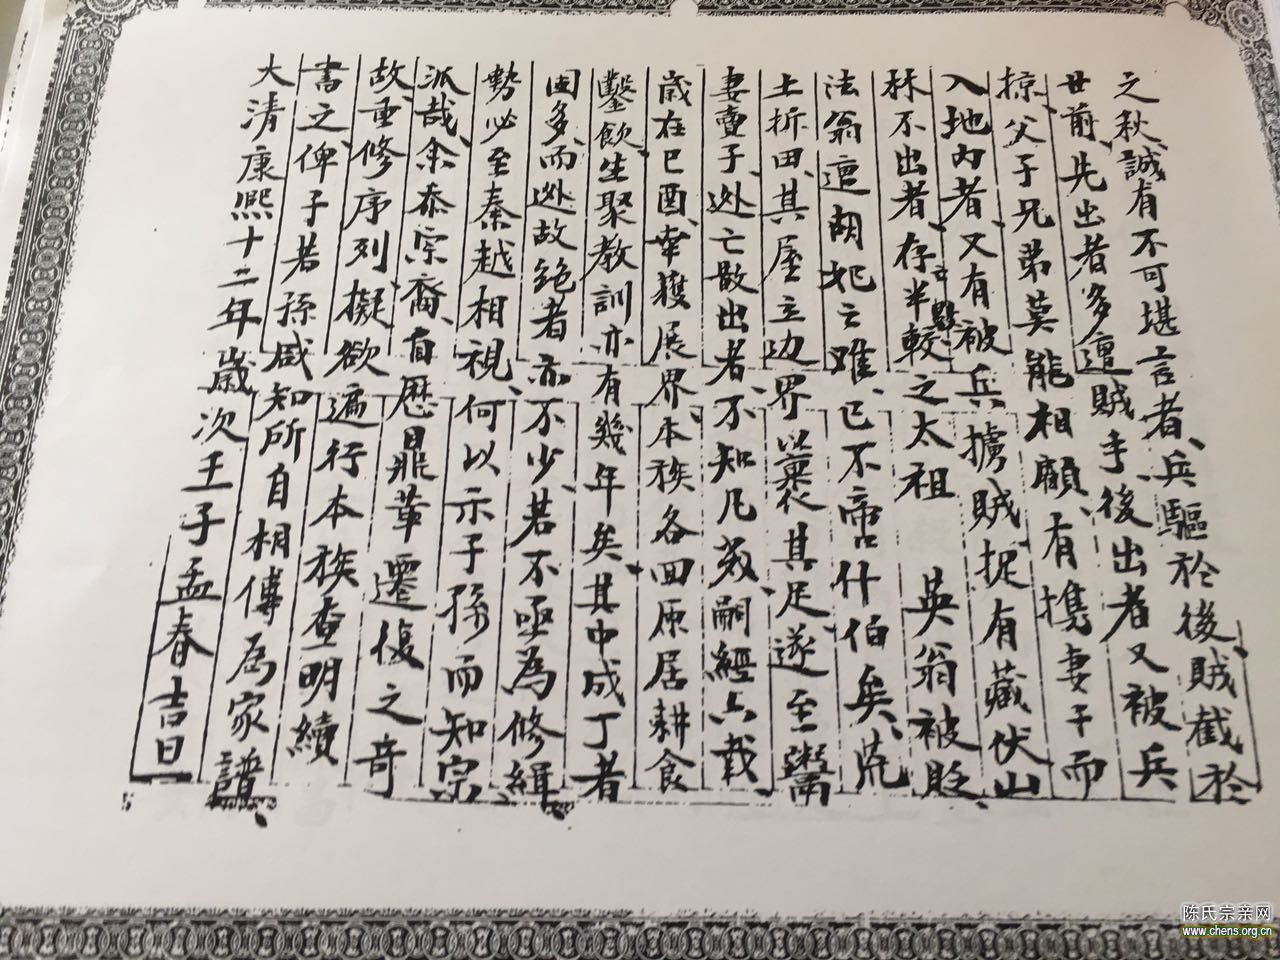 之秋、誠有不可堪言者、兵驅於後、賊截於
世前、先出者多遭賊手、後出者又被兵
掠、父子兄弟莫能相顧、有攜妻子而
入地內者、又有被兵擄賊捉有藏伏山
林不出者、存半較之太祖 英翁被貶、
法翁遭胡妃之难、已不啻什伯矣、荒
土折田、其屋立边界以裹其足、遂至鬻
妻賣子、逃亡散出者、不知凡幾、嗣經六载、
歲在已酉、幸獲展界、本族各回原居耕食
鑿飲、生聚教訓亦有幾年矣、其中成丁者
固多、而逃故絕者亦不少、若不亟為修緝
勢必至秦越相視、何以示子孫而知宗
派哉、余忝宗裔、目歷鼎革遷復之奇
故、重修序列、擬欲遍行本族查明續
書之、俾子若孫咸知所自相傳為家譜、
大清康熙十二年歲次王子孟春吉日
陈氏宗亲网
www.chens.org.cn